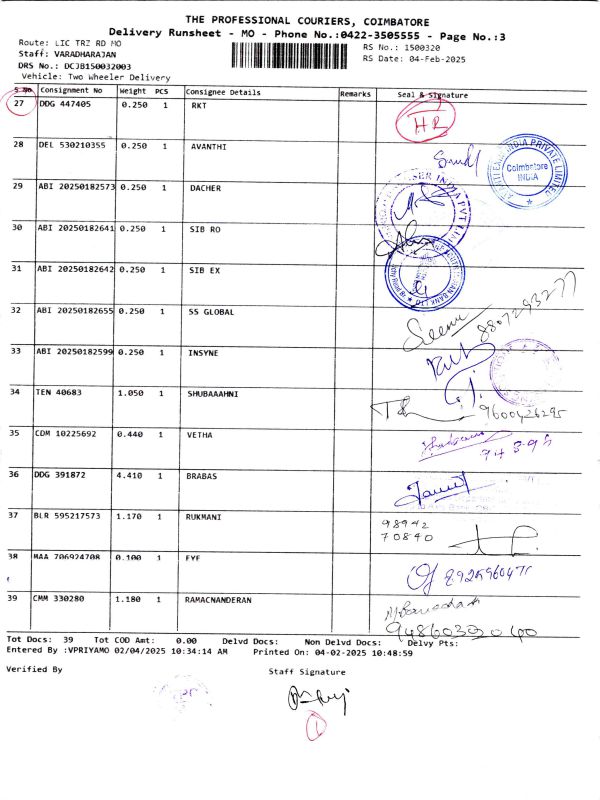 THE PROFESSIONAL COURIERS, COIMBATORE
Delivery Runsheet - MO - Phone No.:0422-3505555 - Page No.:3
Route: LIC TRZ RD MO
RS No.: 1500320
Staff: VARADHARAJAN
RS Date: 04-Feb-2025
DRS No.: DCJB150032003
Vehicle: Two Wheeler Delivery
S.No Consignment No Weight PCS Consignee Details Remarks Seal & Signature
27 DDG 447405 0.250 1 RKT
HR
28 DEL 530210355 0.250 1 AVANTHI
Coimbatore
INDIA
29 ABI 20250182573 0.250 1 DACHER
30 ABI 20250182641 0.250 1 SIB RO
31 ABI 20250182642 0.250 1 SIB EX
32 ABI 20250182655 0.250 1 SS GLOBAL
Seenu 8807293277
33 ABI 20250182599 0.250 1 INSYNE
34 TEN 40683 1.050 1 SHUBAAAHNI
9600426295
35 CDM 10225692 0.440 1 VETHA
36 DDG 391872 4.410 1 BRABAS
37 BLR 595217573 1.170 1 RUKMANI
98942
70840
38 MAA 706924708 0.100 1 FYF
39 CMM 330280 1.180 1 RAMACNANDERAN
Tot Docs: 39 Tot COD Amt: 0.00 Delvd Docs: Non Delvd Docs: Delvy Pts:
Entered By :VPRIYAMO 02/04/2025 10:34:14 AM Printed On: 04-02-2025 10:48:59
Verified By
Staff Signature
1